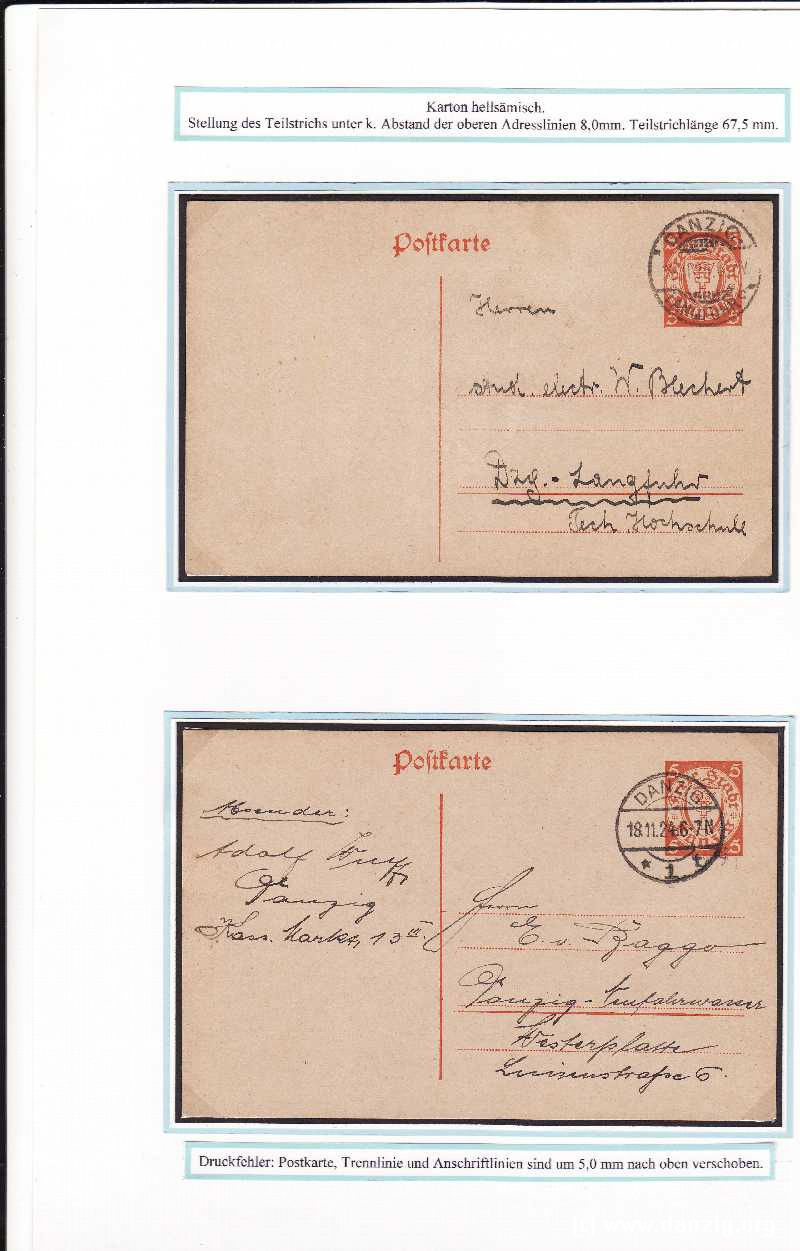 Karton hellsämisch.
Stellung des Teilstrichs unter k. Abstand der oberen Adresslinien 8,0mm. Teilstrichlänge 67,5 mm.
Poſtkarte
DANZIG
5
Herren
stud. electr. W. Blechert
Dzg.-Langfuhr
Tech Hochschule
Poſtkarte
5 5
DANZIG
18.11.24.6-7N
* 1 f
Absender:
Adolf
Danzig
Kass. Markt, 13 III
Herrn
E. v. Baggo
Danzig-Neufahrwasser
Westerplatte
Luisenstraße 6.
Druckfehler: Postkarte, Trennlinie und Anschriftlinien sind um 5,0 mm nach oben verschoben.
(c) www.danzig.org